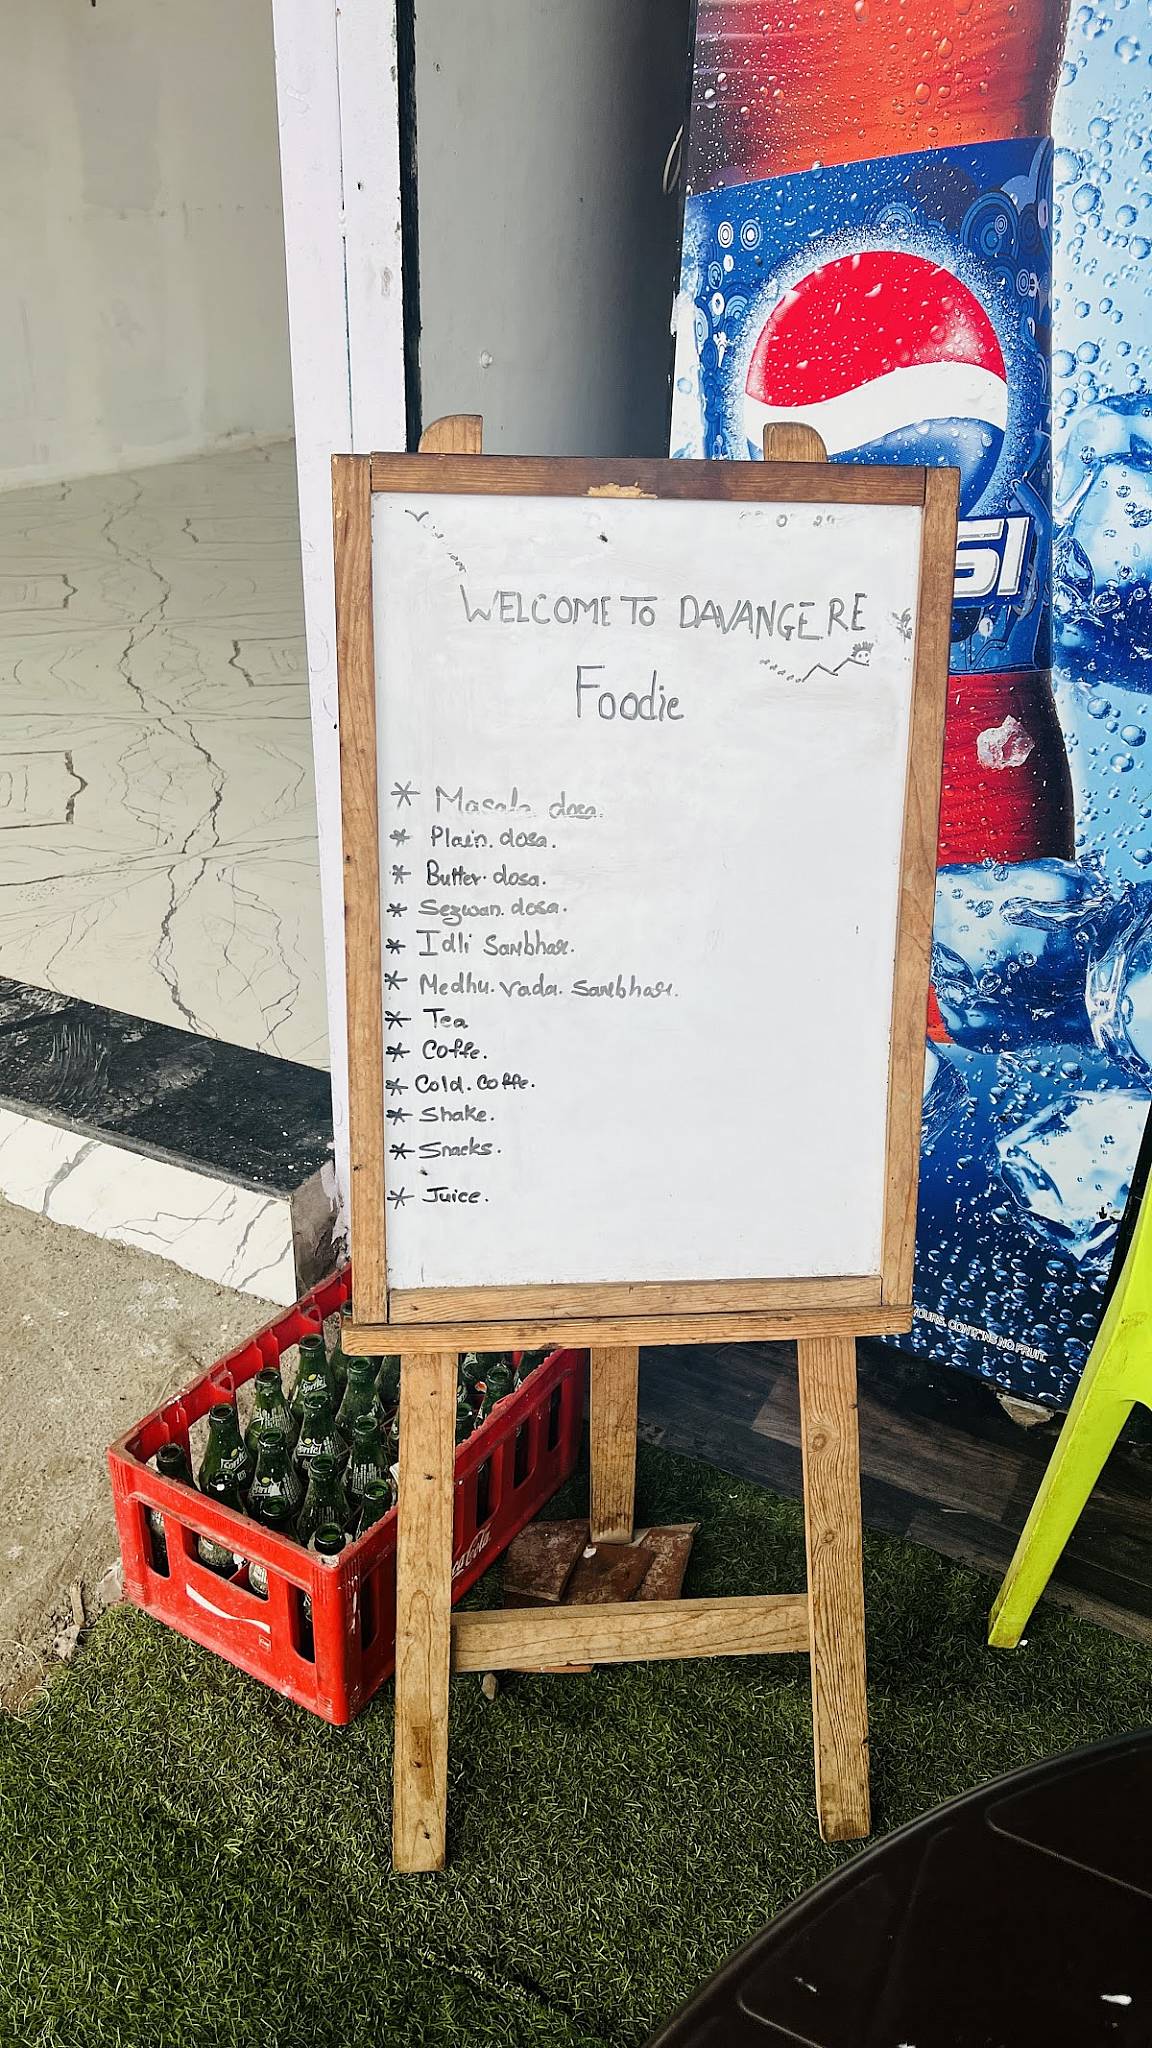 WELCOME TO DAVANGERE
Foodie
* Masala dosa.
* Plain. dosa.
* Butter. dosa.
* Sezwan. dosa.
* Idli Sambhar.
* Medhu. vada. Sambhar.
* Tea
* Coffe.
* Cold. Coffe.
* Shake.
* Snacks.
* Juice.
SI
YOURS. CONTAINS NO FRUIT.
Sprite
Coca-Cola